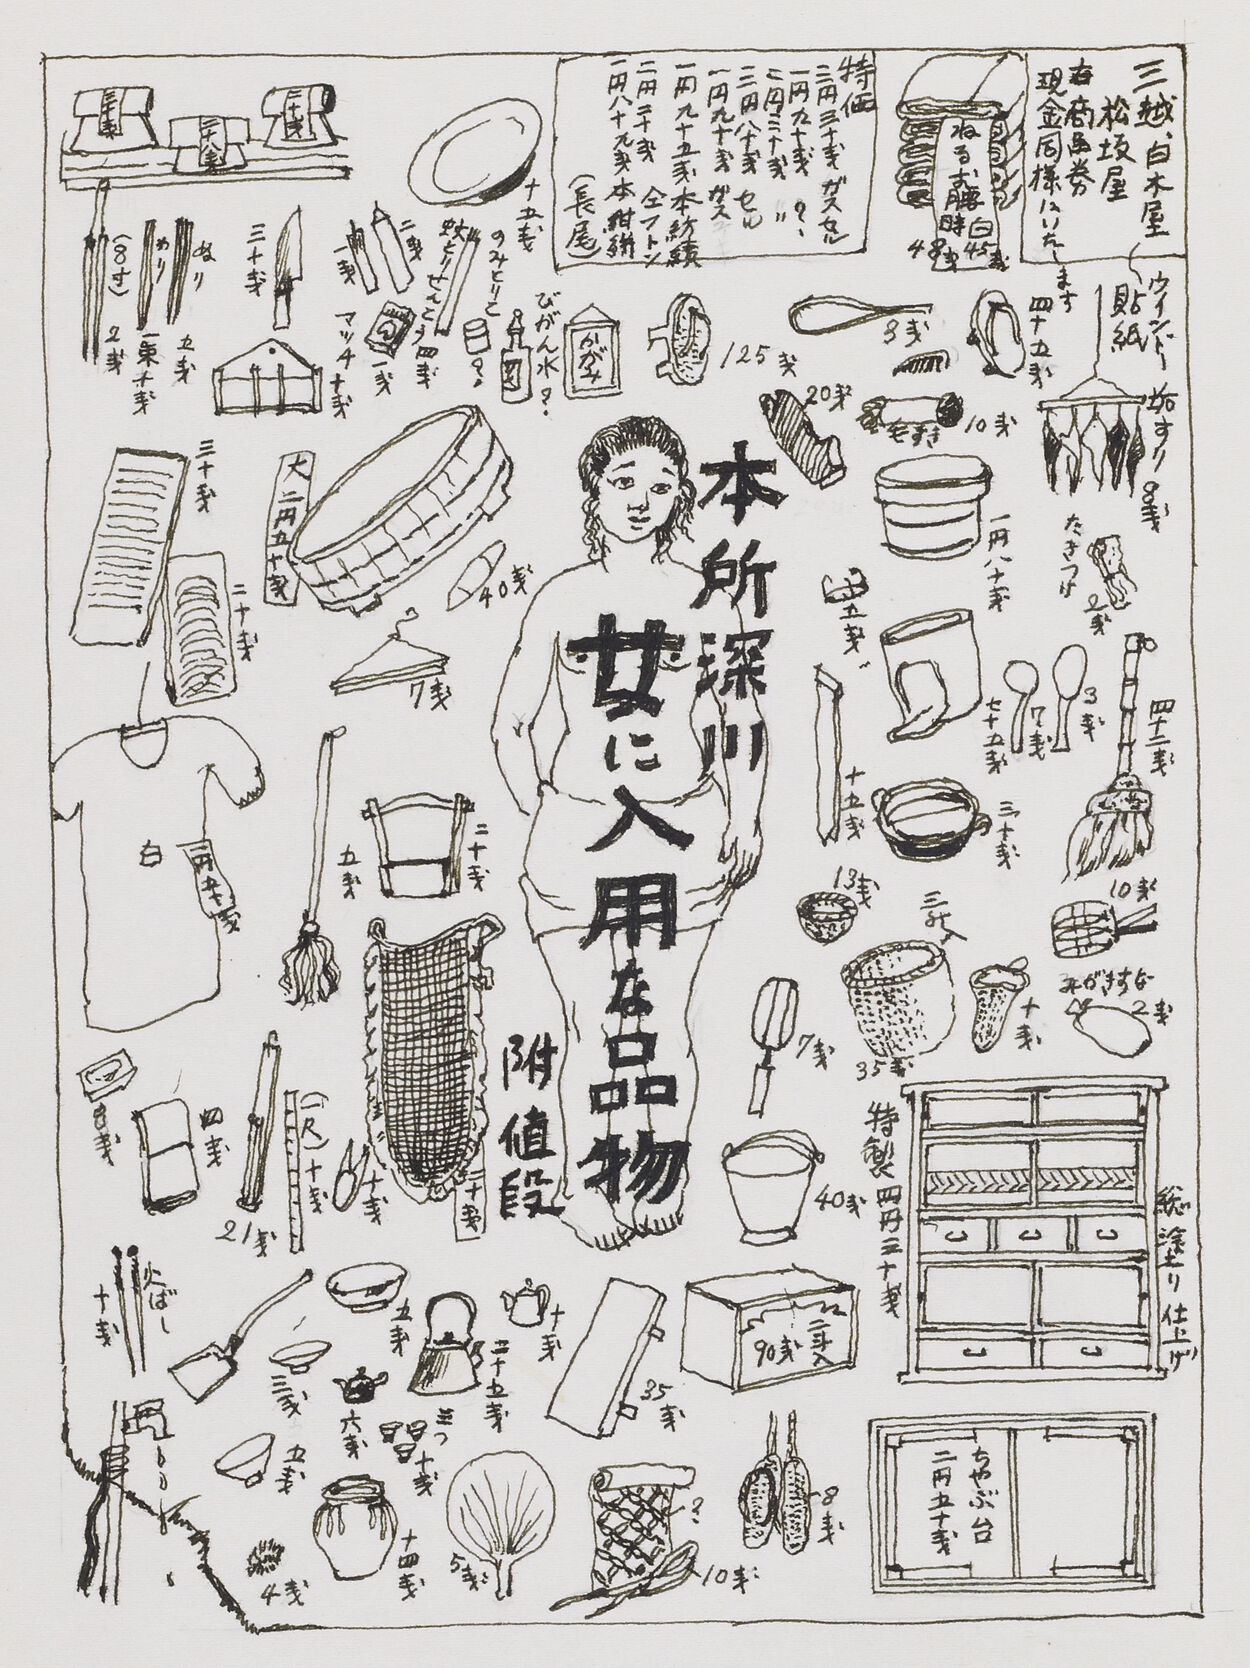 三越、白木屋
松坂屋
右商品券
現金同様にいたします
ウインドー
貼紙
ねるお腰
白45銭
時48銭
特価
二円三十銭 ガスセル
一円九十銭 ?
二円三十銭 〃
二円八十銭 セル
一円九十銭 ガス
一円九十五銭 本紡績
二円二十銭 仝フトン
一円八十九銭 本紺絣
(長尾)
三十銭
二十八銭
二十銭
十五銭
(8寸)
2銭
ぬり
一束十銭
ぬり
五銭
三十銭
一銭
二銭
蚊とりせんこう
四銭
のみとりこ
?
マッチ
一銭
十銭
びがん水
?
かがみ
125銭
3銭
四十五銭
垢すり
8銭
20銭
毛すき
10銭
三十銭
大二円五十銭
40銭
二十銭
7銭
一円八十銭
たきつけ
2銭
五銭
七十五銭
7銭
3銭
四十二銭
十五銭
三十銭
本所深川
女に入用な品物
附値段
白
一円五十銭
五銭
二十銭
13銭
三升入
35銭
10銭
みがきずな
2銭
十銭
7銭
8銭
四銭
21銭
(一尺)
十銭
十銭
二十銭
40銭
特製
四円三十銭
総塗り仕上げ
火ばし
十銭
五銭
三銭
六銭
三十五銭
十銭
35銭
二斗入
90銭
五銭
三つ
十銭
十四銭
4銭
5銭
?
10銭
8銭
ちゃぶ台
二円五十銭